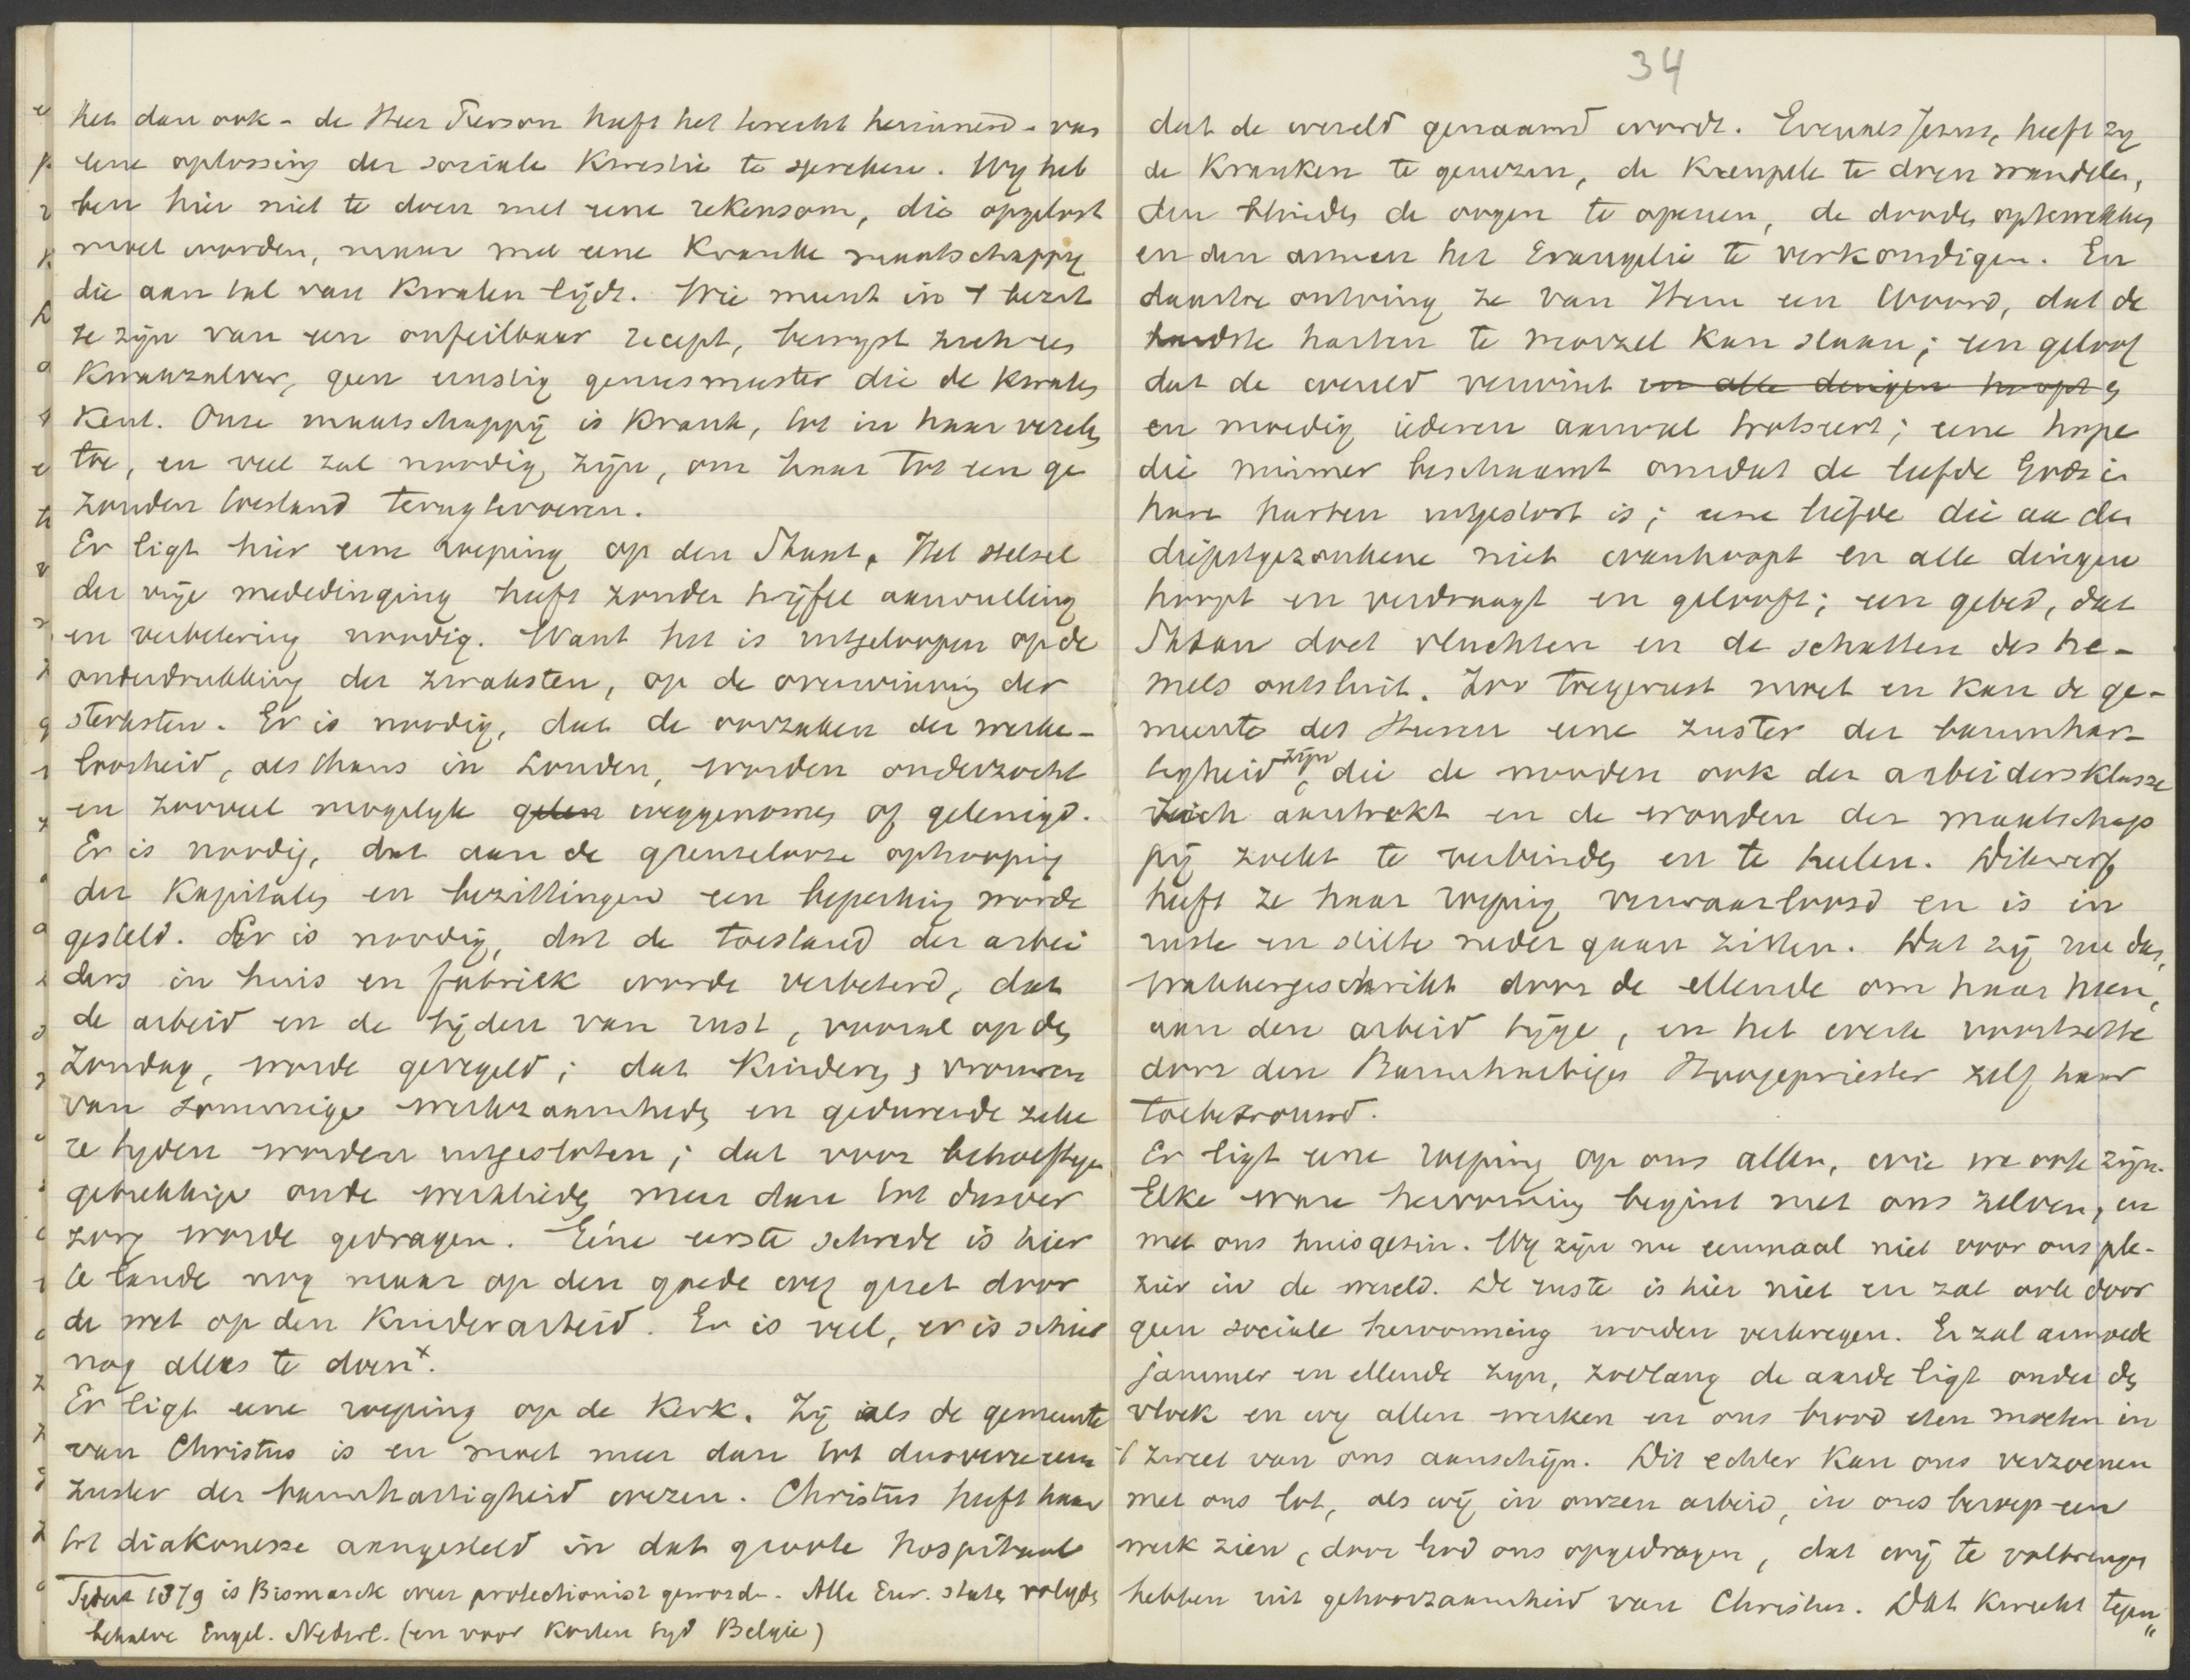 het dan ook - de Heer Pierson heeft het terecht herinnerd - van
eene oplossing der sociale kwestie te spreken. Wy heb
ben hier niet te doen met eene rekensom, die opgelost
moet worden, maar met eene kranke maatschappy
die aan tal van kwalen lijdt. Wie meent in 't bezit
te zijn van een onfeilbaar recept, bewyst zich een
kwakzalver, geen ernstig geneesmeester die de kwalen
kent. Onze maatschappij is krank, tot in haar vezelen
toe, en veel zal noodig zijn, om haar tot een ge
zonden toestand terugtevoeren.
Er ligt hier eene roeping op den Staat. Het stelsel
der vrije mededinging heeft zonder twijfel aanvulling
en verbetering noodig. Want het is uitgeloopen op de
onderdrukking der zwaksten, op de overwinning der
sterksten. Er is noodig, dat de oorzaken der werke-
loosheid, als thans in Londen, worden onderzocht
en zooveel mogelyk gelen weggenomen of gelenigd.
Er is noodig, dat aan de grenzelooze ophooping
der kapitalen en bezittingen een beperking worde
gesteld. Er is noodig, dat de toestand der arbei
ders in huis en fabriek worde verbeterd, dat
de arbeid en de tijden van rust, vooral op den
Zondag, worde geregeld; dat kinderen & vrouwen
van sommige werkzaamheden en gedurende zeke
re tyden worden uitgesloten; dat voor behoeftige
gebrekkige oude werklieden meer dan tot dusver
zorg worde gedragen. Eéne eerste schrede is hier
te lande nog maar op den goede weg gezet door
de wet op den kinderarbeid. Er is veel, er is schier
nog alles te doen x.
Er ligt eene roeping op de Kerk. Zij als de gemeente
van Christus is en moet meer dan tot dusverre eene
zuster der barmhartigheid wezen. Christus heeft haar
tot diakonesse aangesteld in dat groote hospitaal
Sedert 1879 is Bismarck weer protectionist geworden. Alle Eur. staten volgden
behalve Engel. Nederl. (en voor korten tyd Belgie)
34
dat de wereld genaamd wordt. Evenals Jezus, heeft zy
de kranken te genezen, de kreupele te doen wandelen,
den blinden de oogen te openen, de dooden optewekken
en den armen het Evangelie te verkondigen. En
daartoe ontving ze van Hem een Woord, dat de
hardste harten te morzel kan slaan; een geloof
dat de wereld verwint en alle dingen hoopt en
en moedig iederen aanval trotseert; eene hope
die nimmer beschaamt omdat de liefde Gods in
hare harten uitgestort is; eene liefde die aan den
diepstgezonkene niet wanhoopt en alle dingen
hoopt en verdraagt en gelooft; een gebed, dat
Satan doet vluchten en de schatten des he-
mels ontsluit. Zoo toegerust moet en kan de ge-
meente des Heeren eene zuster der barmhar-
tigheid zijn, die de nooden ook der arbeidersklasse
zich aantrekt en de wonden der maatschap
pij zoekt te verbinden en te heelen. Dikwerf
heeft ze haar roeping verwaarloosd en is in
ruste en stilte neder gaan zitten. Dat zij nu dan,
wakkergeschrikt door de ellende om haar heen,
aan den arbeid tijge, en het werk voortzette
door den Barmhartigen Hoogepriester zelf haar
toebetrouwd.
Er ligt eene roeping op ons allen, wie we ook zijn.
Elke ware hervorming begint met ons zelven, en
met ons huisgezin. Wy zijn nu eenmaal niet voor ons ple-
zier in de wereld. De ruste is hier niet en zal ook door
geen sociale hervorming worden verkregen. Er zal armoede
jammer en ellende zyn, zoolang de aarde ligt onder den
vloek en wy allen werken en ons brood eten moeten in
't zweet van ons aanschijn. Dit echter kan ons verzoenen
met ons lot, als wij in onzen arbeid, in ons beroep een
werk zien, door God ons opgedragen, dat wij te volbrengen
hebben uit gehoorzaamheid van Christus. Dat kweekt tegen"